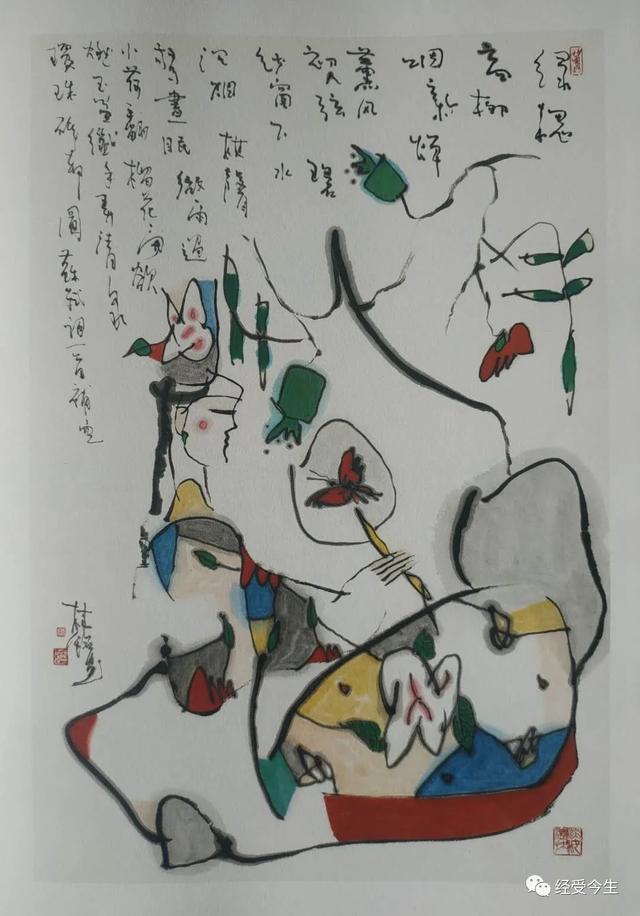 绿槐
高柳
咽新蝉
薰风
初入弦 碧
纱窗下水
沉烟 棋声
惊昼眠 微雨過
小荷翻 榴花开欲
燃玉盆纤手弄清泉
琼珠碎却圆 苏轼词一首補
经受今生